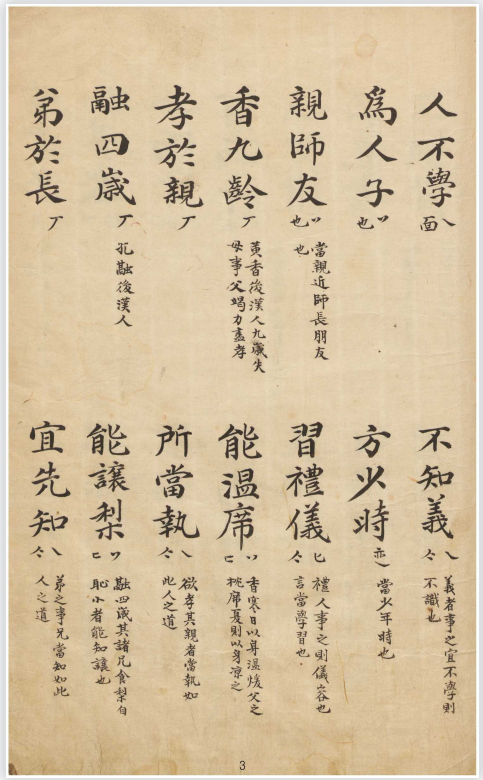 人不學 乀面
不知義 乀亽
義者事之宜不學則
不識也
爲人子 丷也
方少時 亦乀
當少年時也
親師友 丷也
當親近師長朋友
也
習禮儀 匕亽
禮人事之則儀容也
言當學習也
香九齡 丆
黃香後漢人九歲失
母事父竭力盡孝
能溫席 丷匸
香寒日以身溫煖父之
枕席夏則以身凉之
孝於親 丆
所當執 乀亽
欲孝其親者當執如
此人之道
融四歲 丆
孔融後漢人
能讓梨 丷匸
融四歲其諸兄食梨自
恥小者能知讓也
弟於長 丆
宜先知 乀亽
弟之事兄當知如此
人之道
3